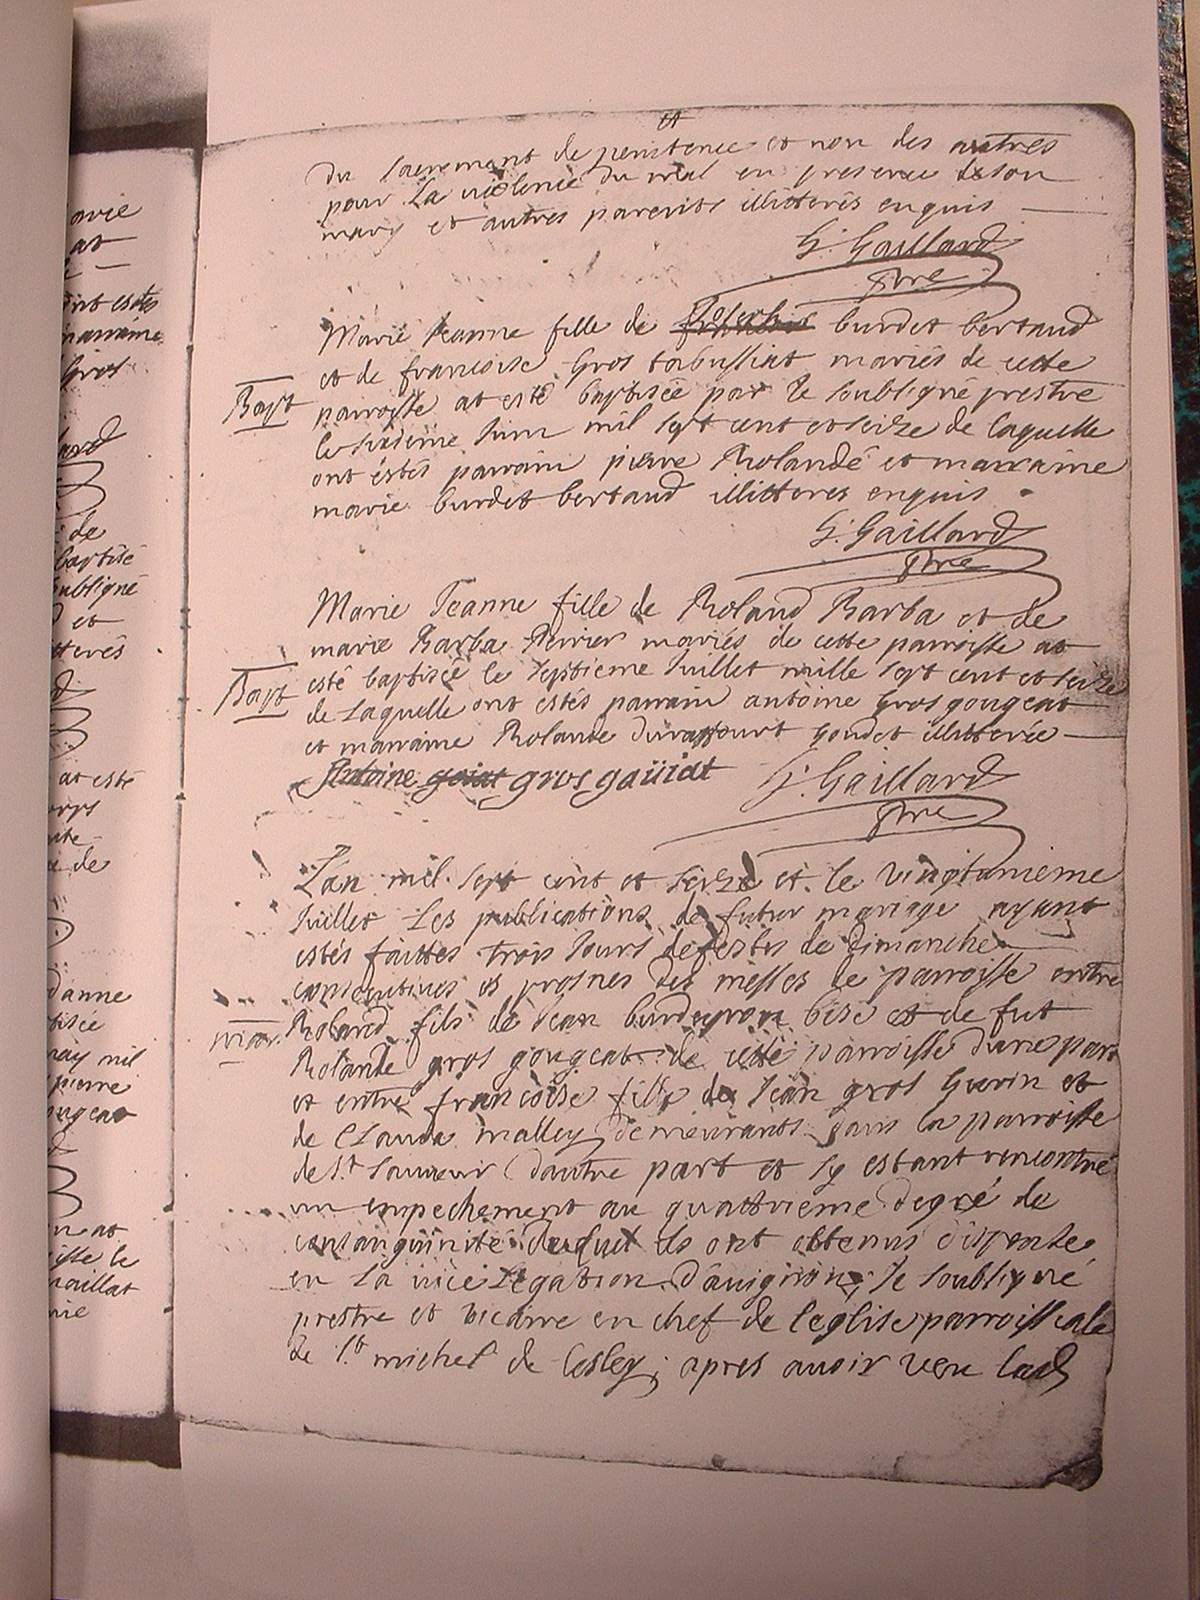 et
du sacrement de penitence et non des autres
pour la violence du mal en presence de son
mary et autres parents illitterés enquis
G. Gaillard
ptre
Marie Jeanne fille de burdet bertaud
et de francoise gros tabussiat mariés de cette
Bapt parroisse at esté baptisée par le soubligné prestre
le sixieme Juin mil sept cent et seize de laquelle
ont éstés parrain pierre Rolande et marraine
marie burdet bertaud illitteres enquis
G. Gaillard
ptre
Marie Jeanne fille de Roland Barba et de
marie Barba Perrier mariés de cette parroisse at
Bapt esté baptisée le septieme Juillet mille sept cent et seize
de laquelle ont estés parrain antoine gros gougeat
et marraine Rolande duraffourt goudet illitterée
Antoine goiat gros gaüiat G. Gaillard
ptre
L'an mil sept cent et seize et le vingtunieme
Juillet les publications de futur mariage ayant
estés faittes trois Jours de festes de dimanche
consecutives és prosnes des messes de parroisse entre
mar. Roland fils de Jean burdeyron bise et de fut
Rolande gros gougeat de cette parroisse d'une part
et entre francoise fille de Jean gros Gurin et
de Clauda malley demeurants dans la parroisse
de St. Sauveur d'autre part et sy estant rencontré
un empechement au quattrieme degré de
consanguinité duquel ils ont obtenus dispense
en la vice legation d'avignon, Je soubligné
prestre et vicaire en chef de leglise parroissiale
de St. michel de lesley; apres avoir veu lad
arie
at
ont estés
marraine
gros
lard
de
baptisé
soubligné
et
itterés
at esté
corps
de
danne
tisée
may mil
pierre
ougeat
at
isse le
maillat